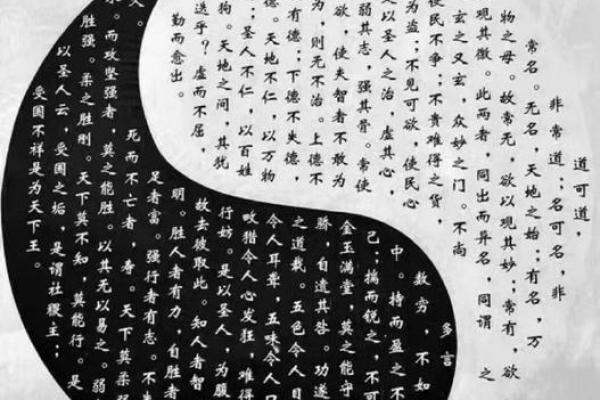 道可道，
非常道；名可名，非
常名。无名，天地之始；有名，万
物之母。故常无，欲以观其妙；常有，欲
观其徼。此两者，同出而异名，同谓之
玄之又玄，众妙之门。不尚
使民不争；不贵难得之货，
为盗；不见可欲，使民心
是以圣人之治，虚其心，
弱其志，强其骨。常使
欲，使夫智者不敢为
为，则无不治。上德不
有德；下德不失德，
德。天地不仁，以万物
；圣人不仁，以百姓
狗。天地之间，其犹
乎？虚而不屈，
勤而愈出。
多言
数穷，不如
中。持而盈之不
己；揣而锐之，不可
金玉满堂莫之能守
骄，自遗其咎。功遂
之道哉。五色令人目
令人耳聋，五味令人口
畋猎令人心发狂，难得
行妨。是以圣人，为腹
故去彼取此。知人者智
明。胜人者有力，自胜者
足者富。强行者有志。不失
死而不亡者，寿。天下莫柔弱
。而攻坚强者，莫之能胜。以其无以易之。弱
胜强。柔之胜刚。天下莫不知，莫能行。是
以圣人云，受国之垢，是谓社稷主；
受国不祥是为天下王。